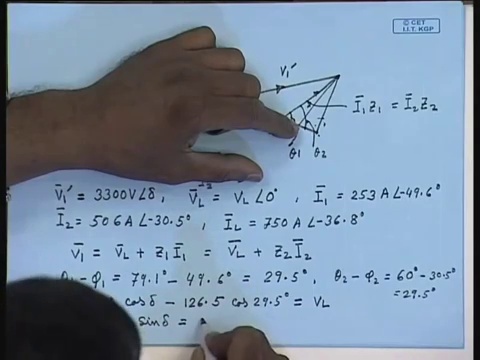 © CET
I.I.T. KGP
V₁′
Ī₁Z₁ = Ī₂Z₂
θ₁ θ₂
V̄₁′ = 3300V∠δ, V̄_L = V_L∠0°, Ī₁ = 253 A∠-49.6°
Ī₂ = 506 A∠-30.5°, Ī_L = 750 A∠-36.8°
V̄₁ = V̄_L + Z₁Ī₁ = V̄_L + Z₂Ī₂
θ₁ - φ₁ = 79.1° - 49.6° = 29.5°, θ₂ - φ₂ = 60° - 30.5°
= 29.5°
cosδ - 126.5 cos 29.5° = V_L
sinδ =